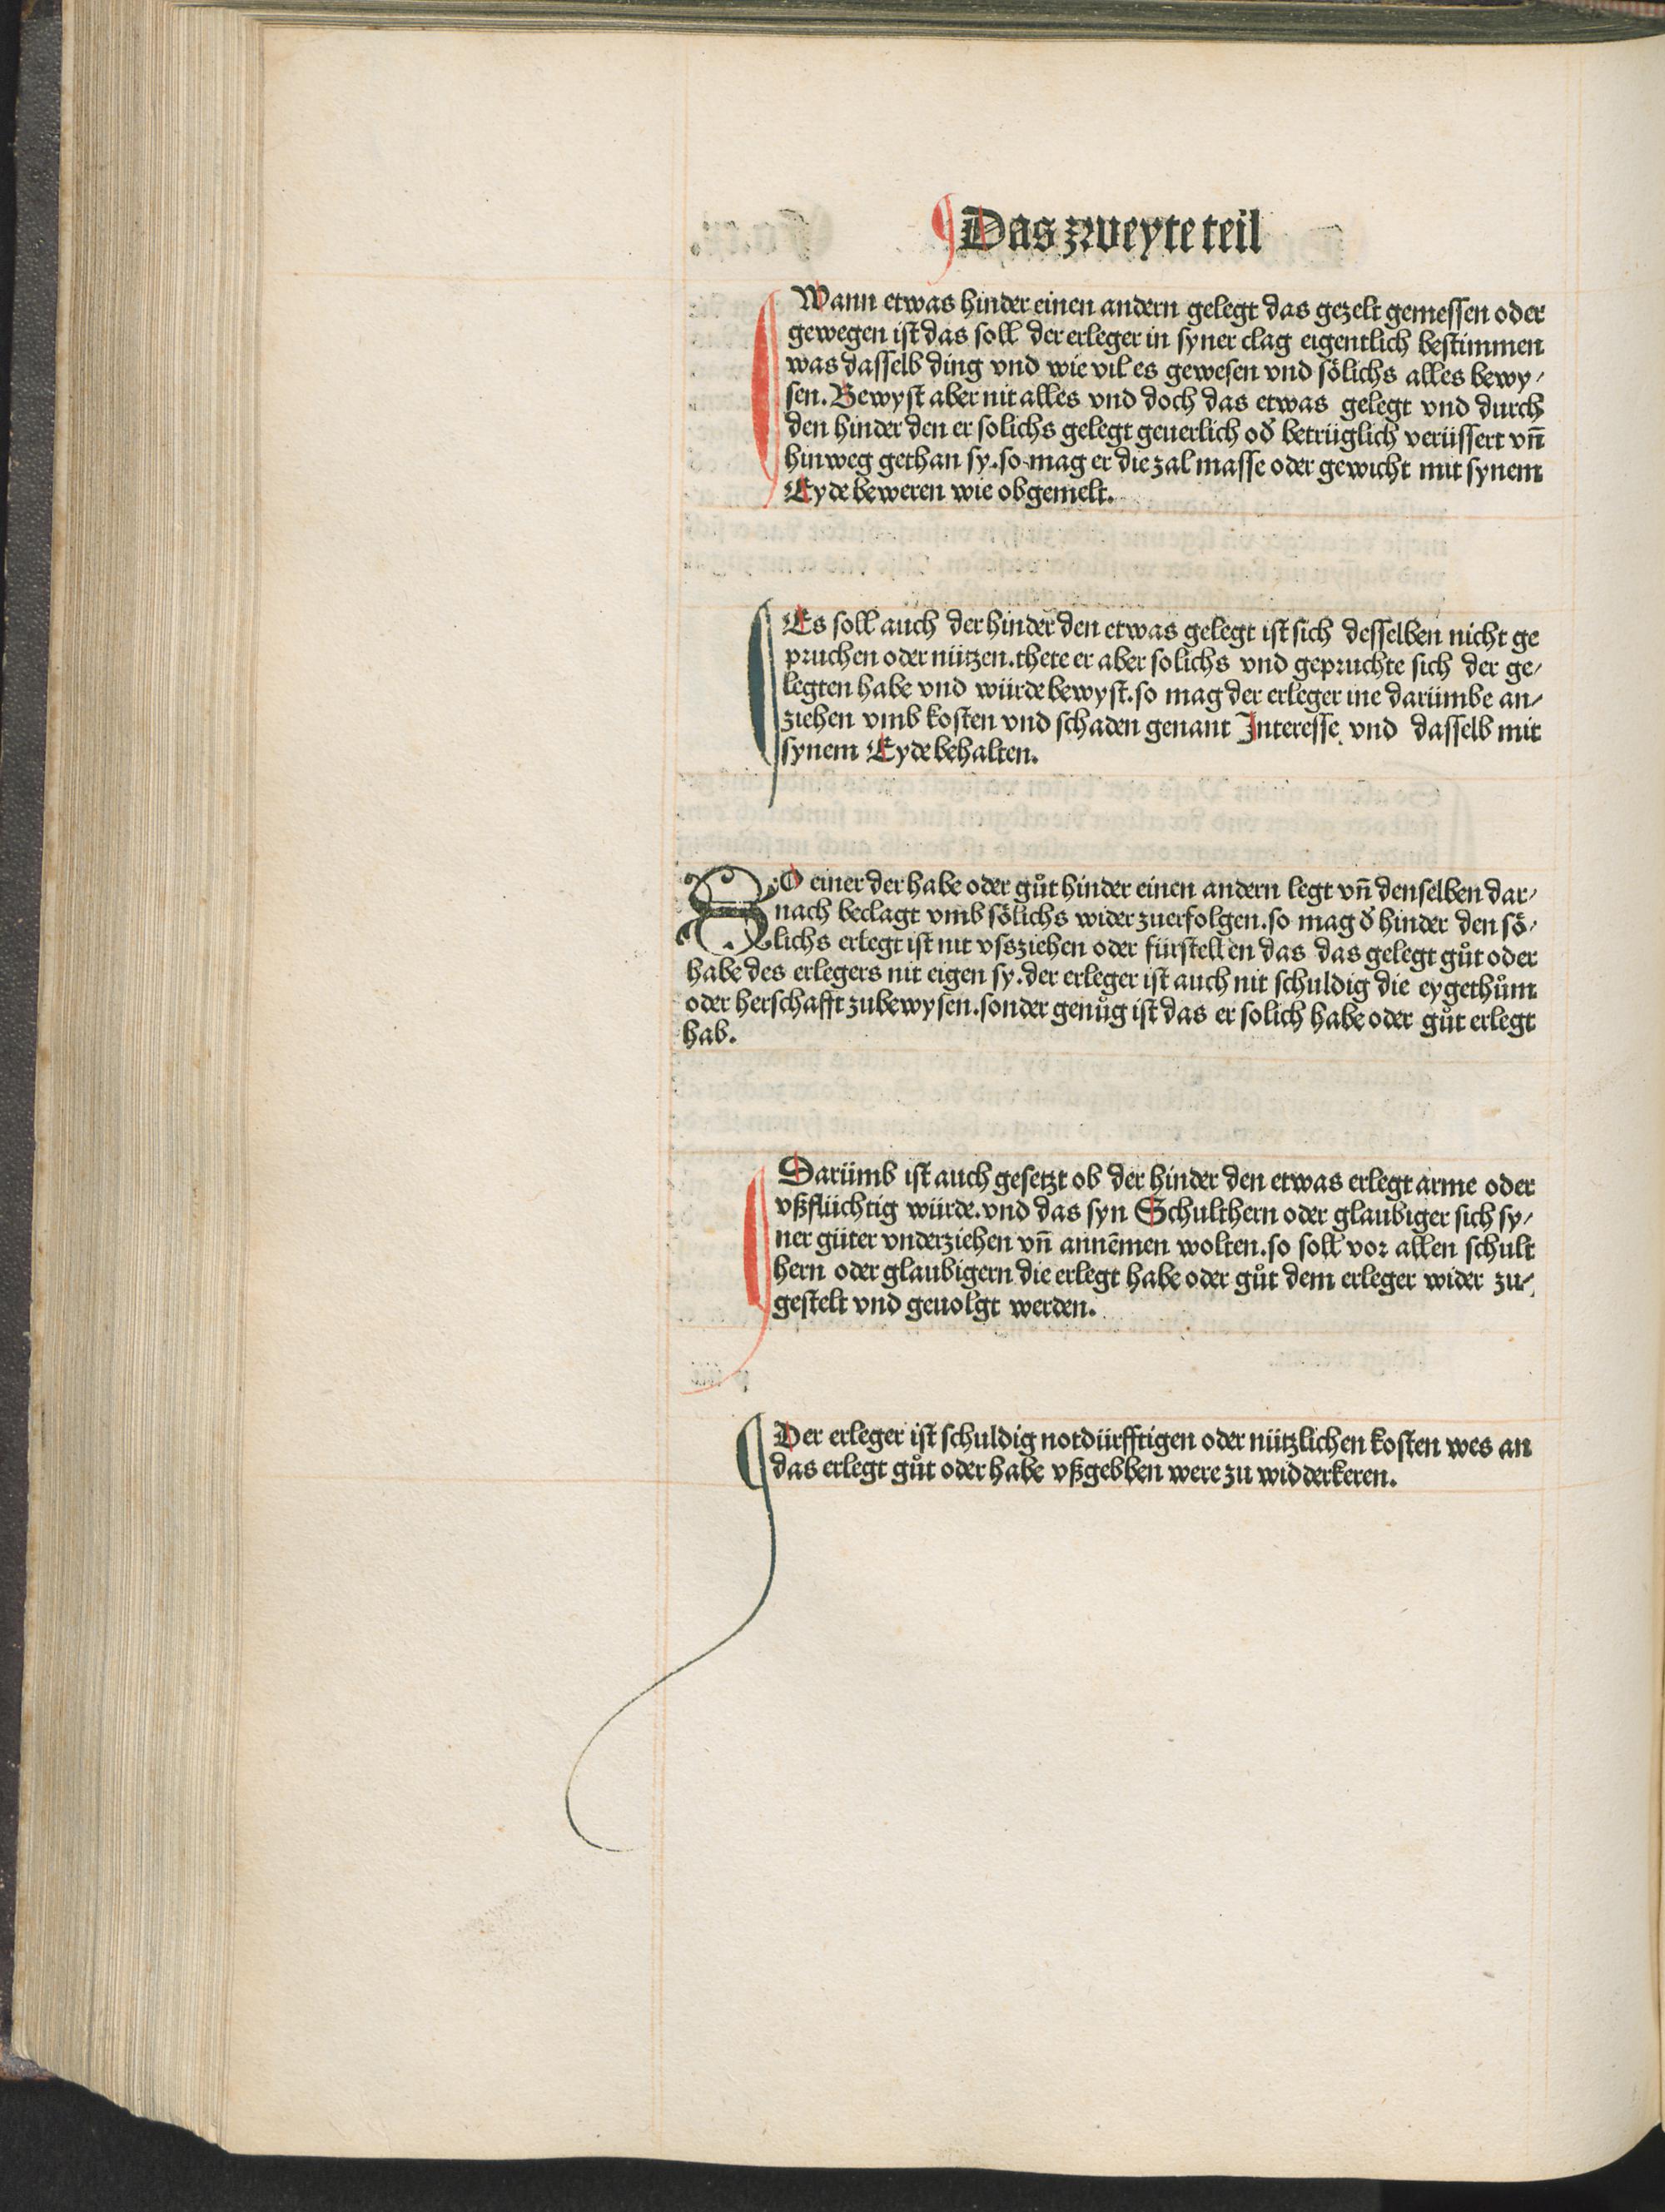 Das zweyte teil
Wann etwas hinder einen andern gelegt das gezelt gemessen oder
gewegen ist das soll der erleger in syner clag eigentlich bestimmen
was dasselb ding vnd wie vil es gewesen vnd sölichs alles bewy⸗
sen. Bewyst aber nit alles vnd doch das etwas gelegt vnd durch
den hinder den er solichs gelegt geuerlich od̛ betrüglich verüssert vn̄
hinweg gethan sy. so mag er die zal masse oder gewicht mit synem
Eyde beweren wie obgemelt.
Es soll auch der hinder den etwas gelegt ist sich desselben nicht ge
pruchen oder nützen. thete er aber solichs vnd gepruchte sich der ge⸗
legten habe vnd würde bewyst. so mag der erleger ine darümbe an⸗
ziehen vmb kosten vnd schaden genant Interesse. vnd dasselb mit
synem Eyde behalten.
SO einer der habe oder gůt hinder einen andern legt vn̄ denselben dar⸗
nach beclagt vmb sölichs wider zuerfolgen. so mag d̛ hinder den sö⸗
lichs erlegt ist nit vssziehen oder fürstellen das das gelegt gůt oder
habe des erlegers nit eigen sy. der erleger ist auch nit schuldig die eygethům
oder herschafft zubewysen. sonder genůg ist das er solich habe oder gůt erlegt
hab.
Darümb ist auch gesetzt ob der hinder den etwas erlegt arme oder
vßflüchtig würde. vnd das syn Schulthern oder glaubiger sich sy⸗
ner güter vnderziehen vn̄ annēmen wolten. so soll vor allen schult
hern oder glaubigern die erlegt habe oder gůt dem erleger wider zu⸗
gestelt vnd geuolgt werden.
Der erleger ist schuldig notdürfftigen oder nützlichen kosten wes an
das erlegt gůt oder habe vßgebben were zu widderkeren.